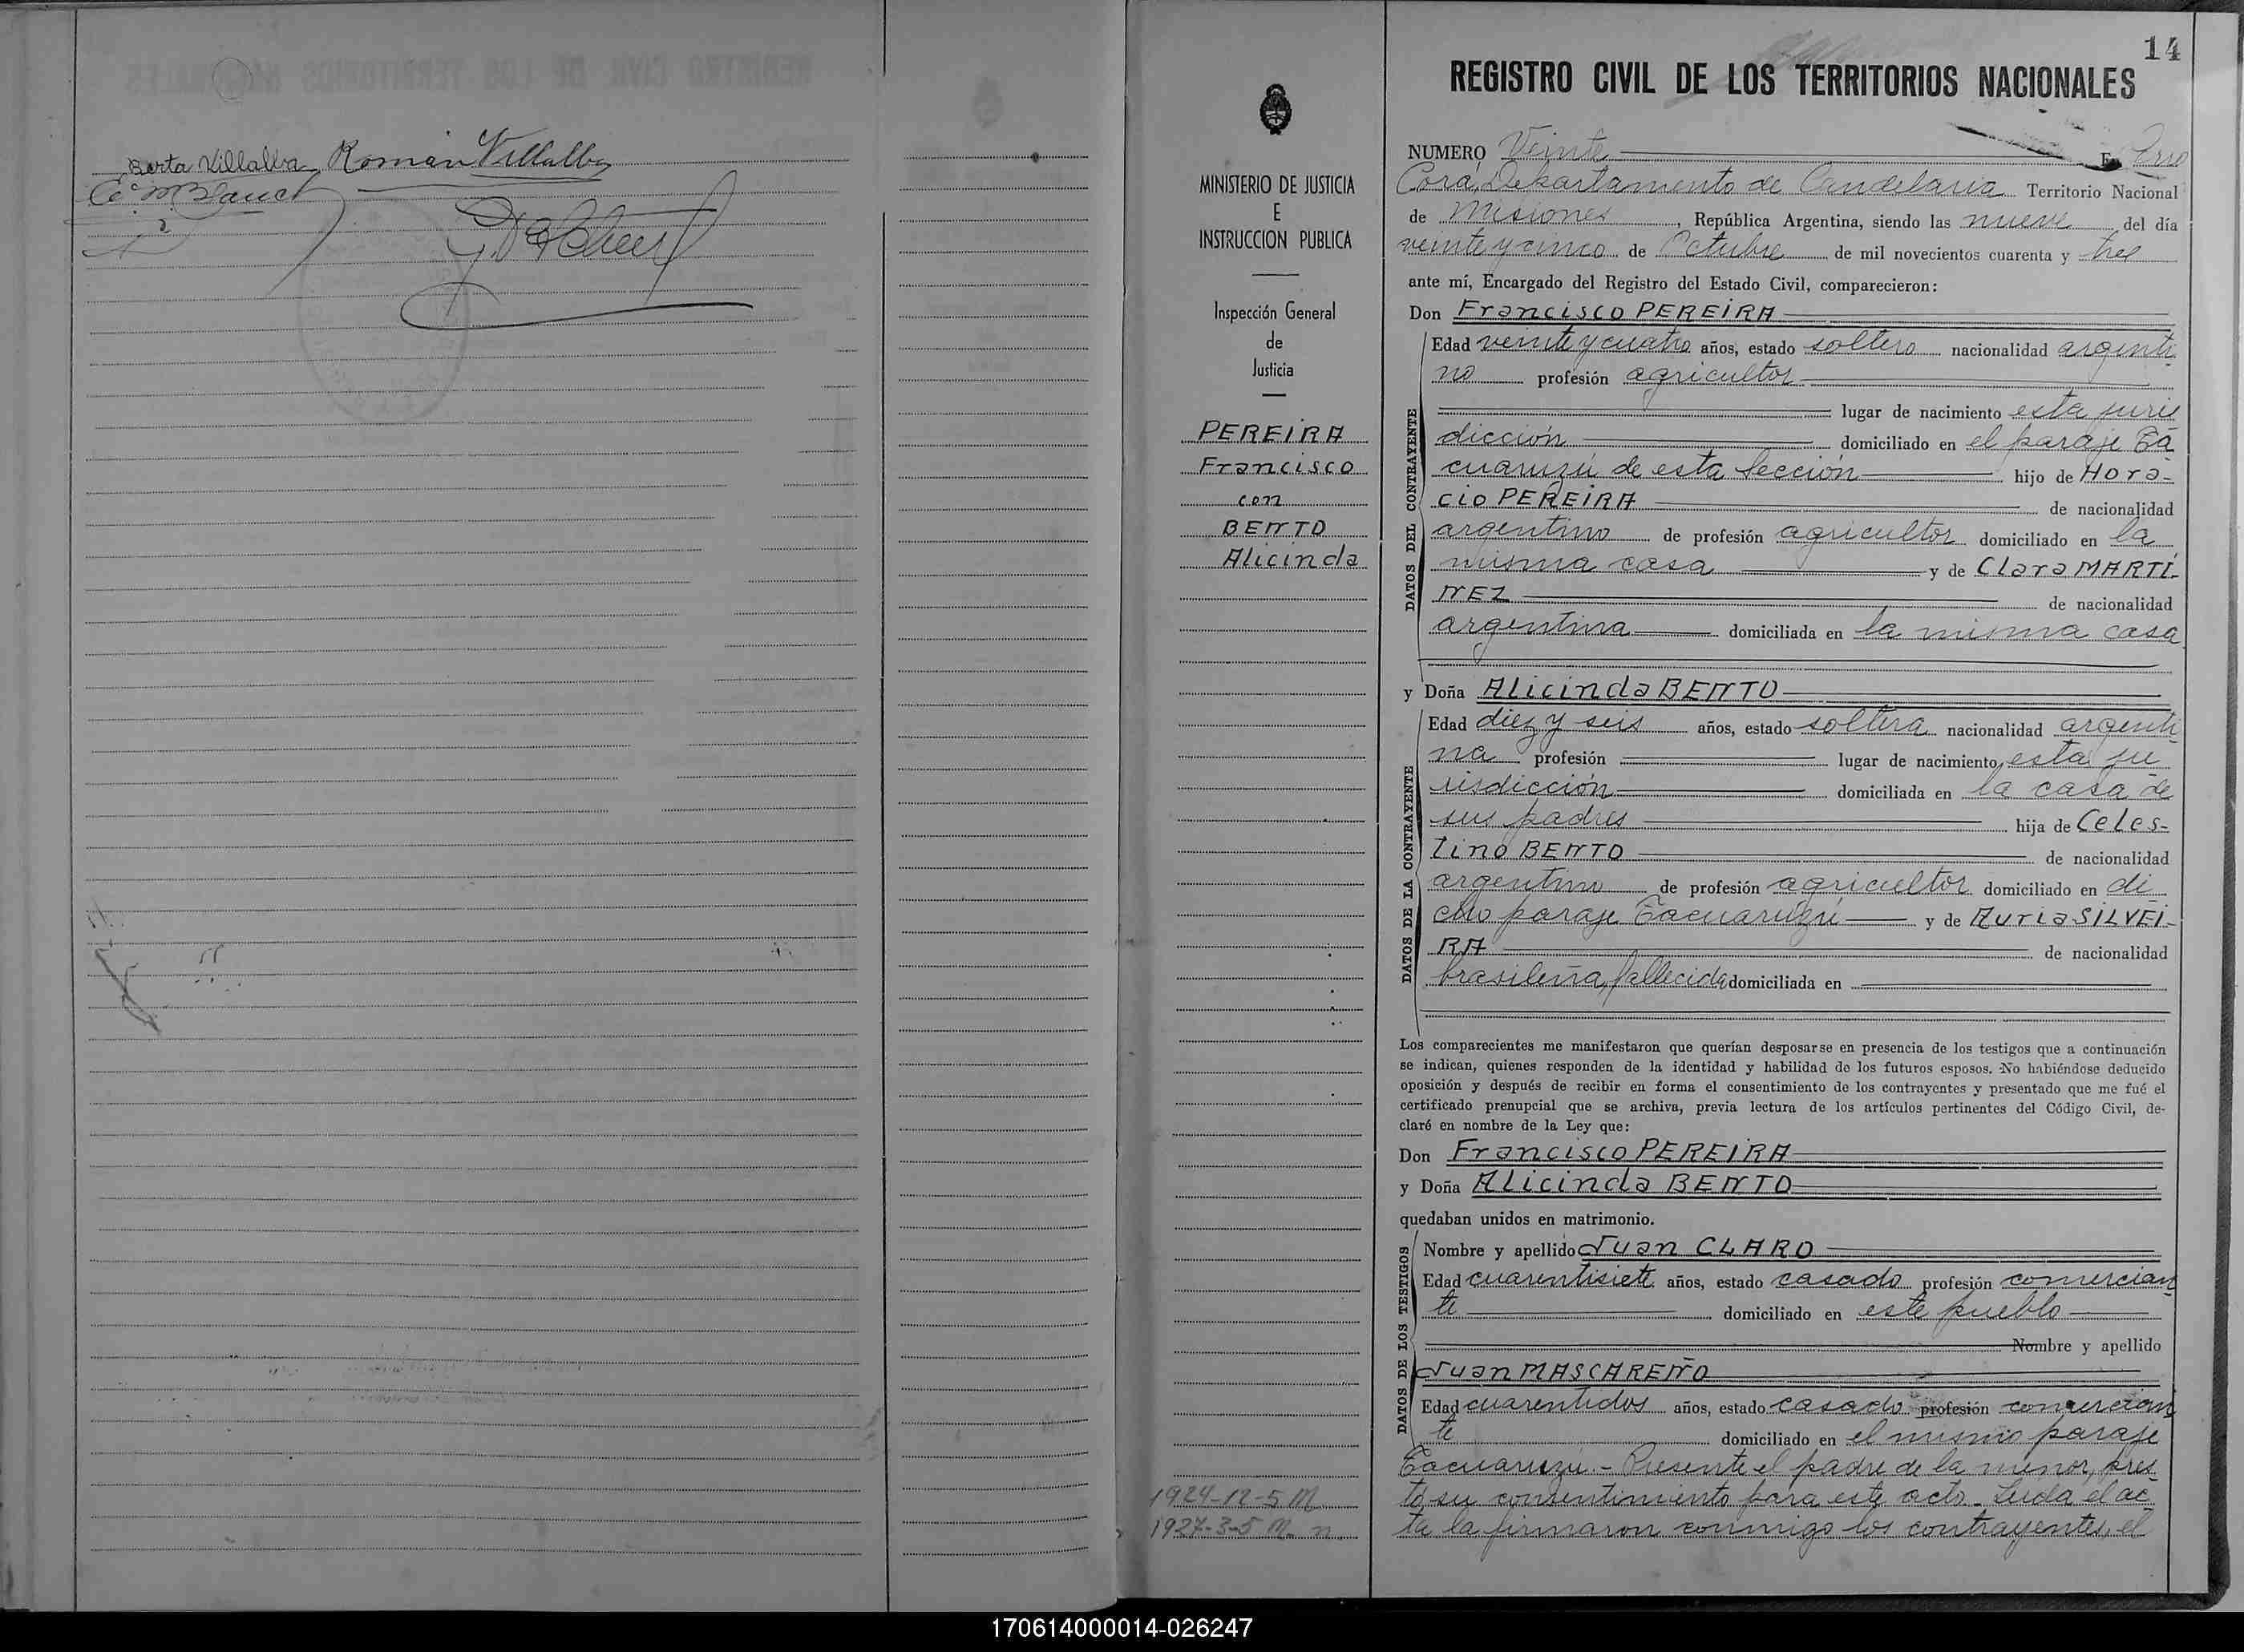 Berta Villalba Román Villalba
14
REGISTRO CIVIL DE LOS TERRITORIOS NACIONALES
MINISTERIO DE JUSTICIA
E
INSTRUCCION PUBLICA
Inspección General
de
Justicia
PEREIRA
Francisco
con
BENTO
Alicinda
1924-12-5 M
1927-3-5 M. n.
NUMERO Veinte En Cerro
Corá, Departamento de Candelaria Territorio Nacional
de Misiones, República Argentina, siendo las nueve del día
veinte y cinco de Octubre de mil novecientos cuarenta y tres
ante mí, Encargado del Registro del Estado Civil, comparecieron:
Don Francisco PEREIRA
DATOS DEL CONTRAYENTE
Edad veinte y cuatro años, estado soltero nacionalidad argenti
no profesión agricultor
lugar de nacimiento esta juris
dicción domiciliado en el paraje Ta
cuaruzú de esta Sección hijo de Hora-
cio PEREIRA de nacionalidad
argentino de profesión agricultor domiciliado en la
misma casa y de Clara MARTÍ-
NEZ de nacionalidad
argentina domiciliada en la misma casa
y Doña Alicinda BENTO
DATOS DE LA CONTRAYENTE
Edad diez y seis años, estado soltera nacionalidad argenti
na profesión lugar de nacimiento esta ju
risdicción domiciliada en la casa de
sus padres hija de Celes-
tino BENTO de nacionalidad
argentino de profesión agricultor domiciliado en di
cho paraje Tacuaruzú y de Auria SILVEI-
RA de nacionalidad
brasileña, fallecida domiciliada en
Los comparecientes me manifestaron que querían desposarse en presencia de los testigos que a continuación
se indican, quienes responden de la identidad y habilidad de los futuros esposos. No habiéndose deducido
oposición y después de recibir en forma el consentimiento de los contrayentes y presentado que me fué el
certificado prenupcial que se archiva, previa lectura de los artículos pertinentes del Código Civil, de-
claré en nombre de la Ley que:
Don Francisco PEREIRA
y Doña Alicinda BENTO
quedaban unidos en matrimonio.
DATOS DE LOS TESTIGOS
Nombre y apellido Juan CLARO
Edad cuarentisiete años, estado casado profesión comercian
te domiciliado en este pueblo
Nombre y apellido
Juan MASCAREÑO
Edad cuarentidos años, estado casado profesión comercian
te domiciliado en el mismo paraje
Tacuaruzú.- Presente el padre de la menor, pres
tó su consentimiento para este acto. Leída el ac
ta la firmaron conmigo los contrayentes, el
170614000014-026247